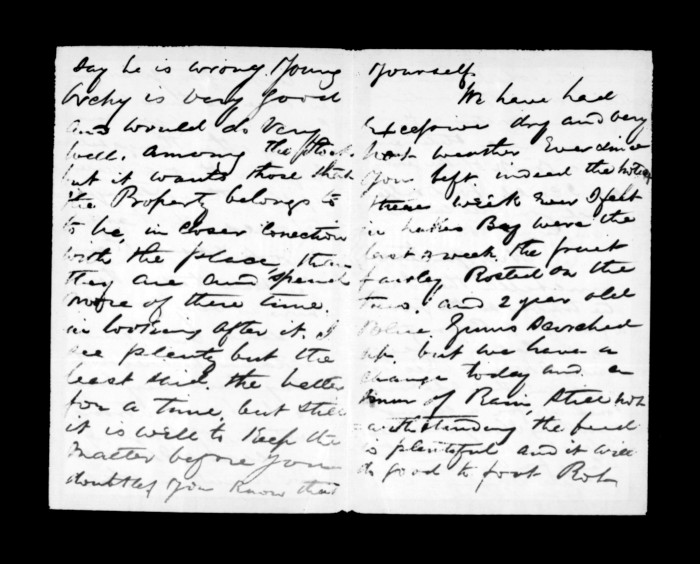 say he is wrong. Young
Archy is very good
and would do very
well. among the Stock.
but it wants those that
the Property belongs to
to be, in closer Conection
with the place, than
they are and spend
more of there time.
in looking after it. I
see plenty but the
least said. the better
for a time, but still
it is well to Keep the
Matter before you
doubtless you Know that
Yourself
We have had
Excessive dry and very
hot weather Ever since
you left indeed the hotest
three week Ever I felt
in Hawkes Bay were the
last 3 week. the fruit
fairley Rosted on the
trees. and 2 year old
Blue Gums Scorched
up. but we have a
change today and. a
of Rain, Still not
withstanding the feed
is plentiful and it will
do good to foot Rot